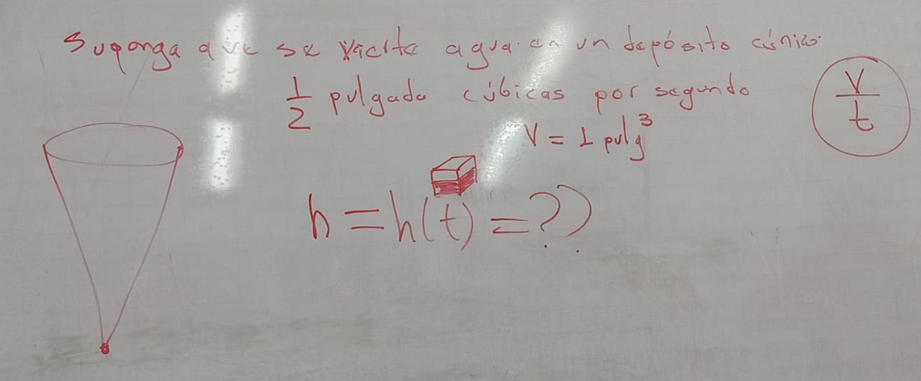 Suponga que se vierte agua en un depósito cónico
1/2 pulgada cúbicas por segundo
V/t
V = 1 pulg³
h = h(t) = ??